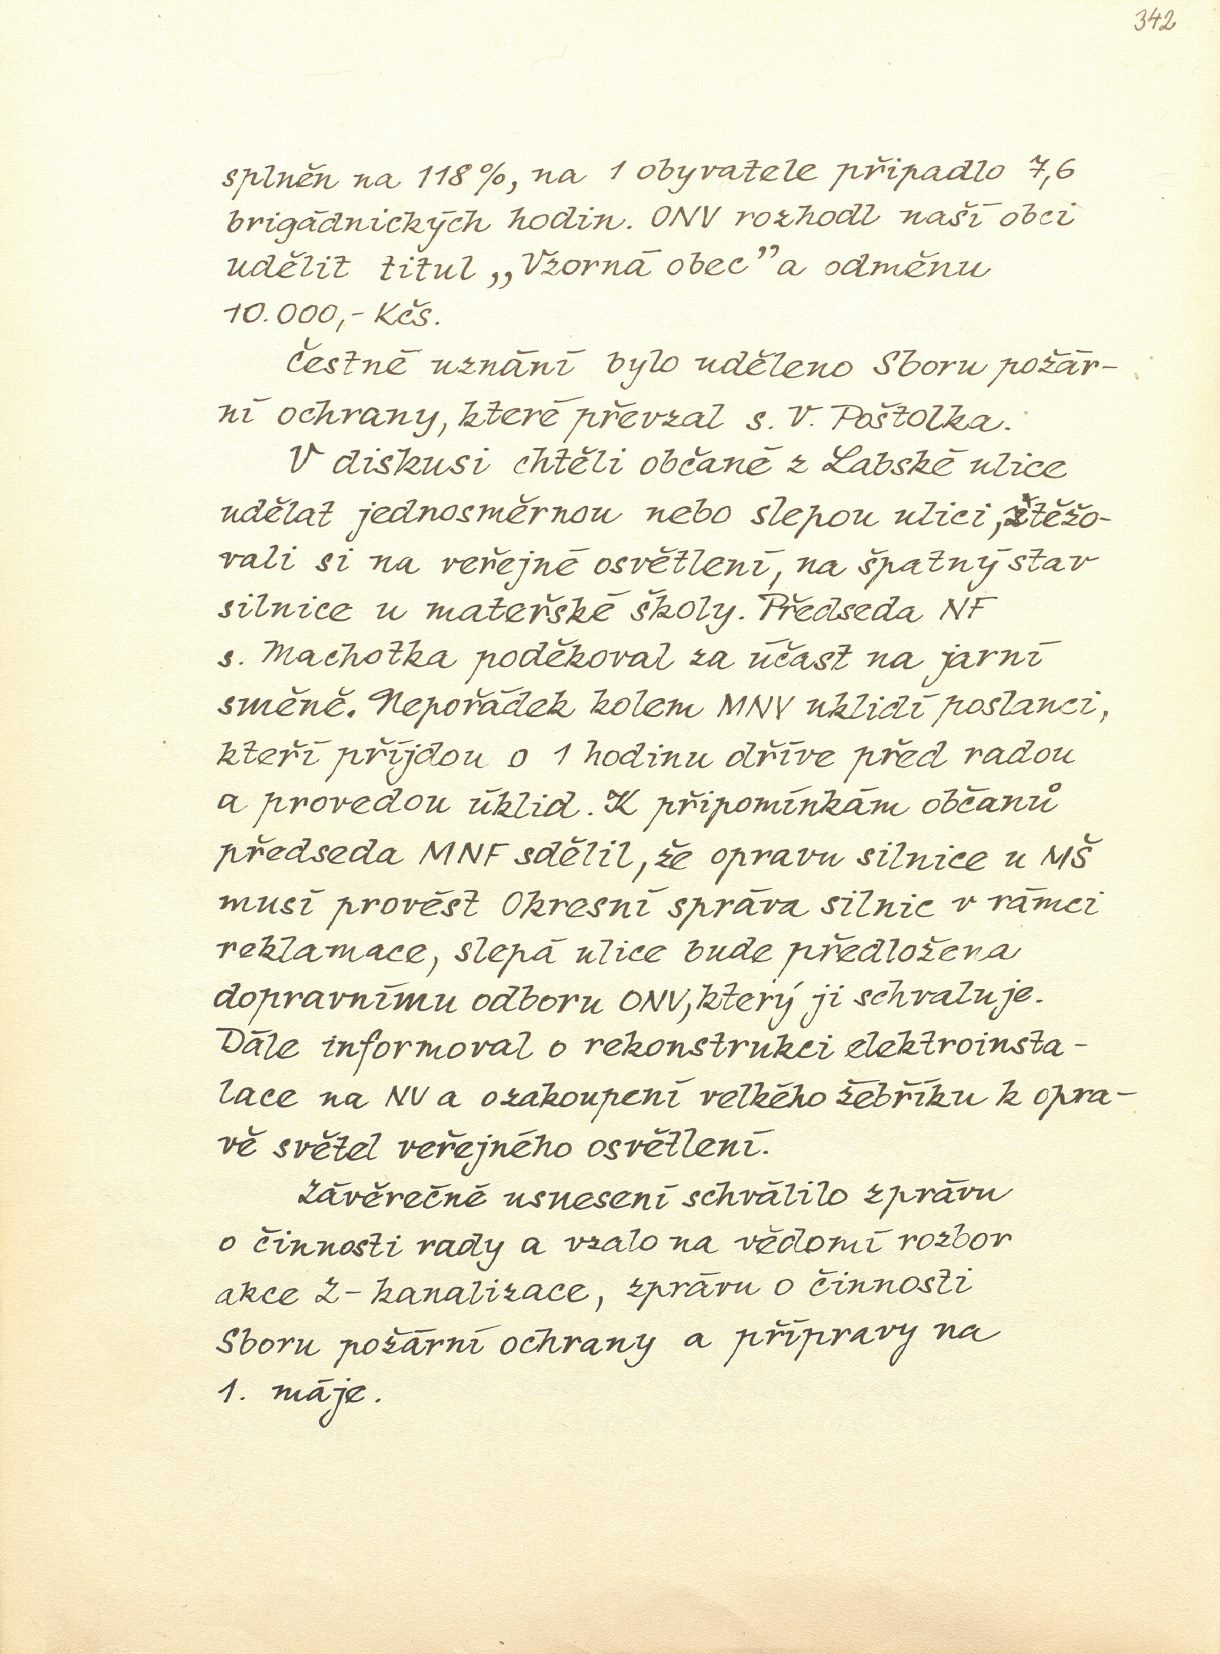 342
splněn na 118%, na 1 obyvatele připadlo 7,6
brigádnických hodin. ONV rozhodl naší obci
udělit titul „Vzorná obec” a odměnu
10.000,- Kčs.
Čestné uznání bylo uděleno Sboru požár-
ní ochrany, které převzal s. V. Poštolka.
V diskusi chtěli občané z Labské ulice
udělat jednosměrnou nebo slepou ulici, stěžo-
vali si na veřejné osvětlení, na špatný stav
silnice u mateřské školy. Předseda NF
s. Machotka poděkoval za účast na jarní
směně. Nepořádek kolem MNV uklidí poslanci,
kteří příjdou o 1 hodinu dříve před radou
a provedou úklid. K připomínkám občanů
předseda MNF sdělil, že opravu silnice u MŠ
musí provést Okresní správa silnic v rámci
reklamace, slepá ulice bude předložena
dopravnímu odboru ONV, který ji schvaluje.
Dále informoval o rekonstrukci elektroinsta-
lace na NV a o zakoupení velkého žebříku k opra-
vě světel veřejného osvětlení.
Závěrečné usnesení schválilo zprávu
o činnosti rady a vzalo na vědomí rozbor
akce Z - kanalizace, zprávu o činnosti
Sboru požární ochrany a přípravy na
1. máje.